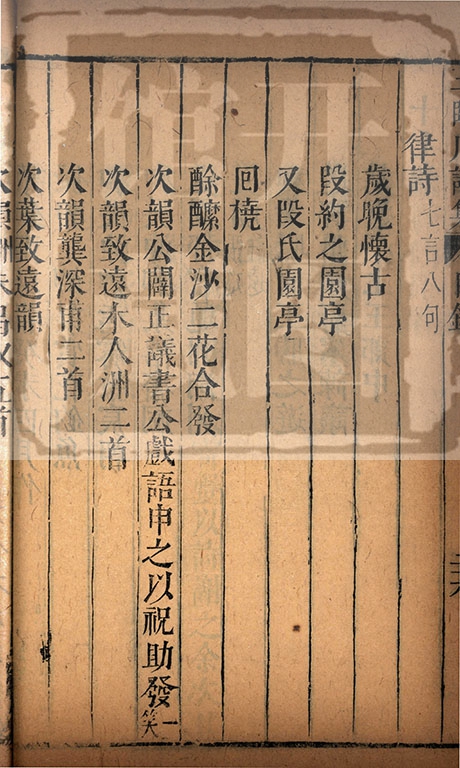 律詩七言八句
歲晚懷古
段約之園亭
又段氏園亭
回橈
酴醾金沙二花合發
次韻公闢正議書公戲語申之以祝助發一笑
次韻致遠木人洲二首
次韻龔深甫二首
次葉致遠韻